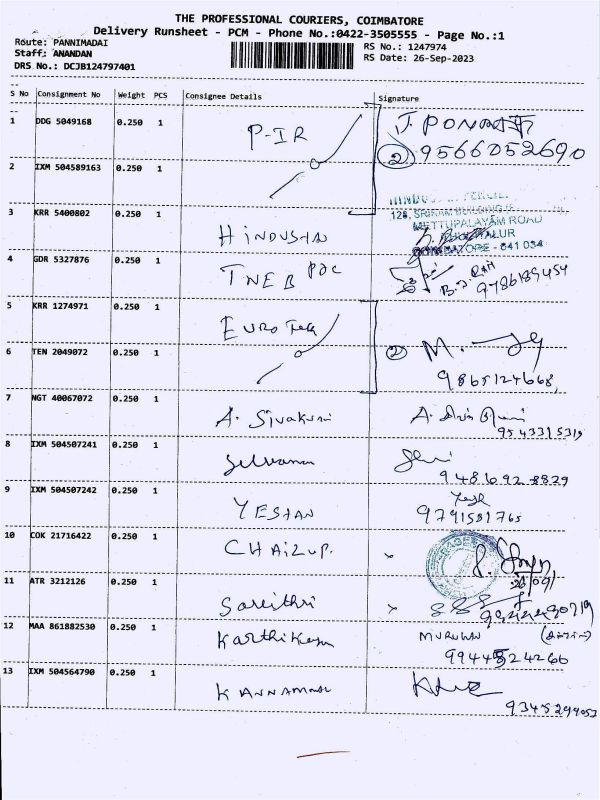 THE PROFESSIONAL COURIERS, COIMBATORE
Delivery Runsheet - PCM - Phone No.:0422-3505555 - Page No.:1
Route: PANNIMADAI
RS No.: 1247974
Staff: ANANDAN
RS Date: 26-Sep-2023
DRS No.: DCJB124797401
S No Consignment No Weight PCS Consignee Details Signature
1 DDG 5049168 0.250 1 P-IR
2 9566052690
2 IXM 504589163 0.250 1
3 KRR 5400802 0.250 1 HINDUSTAN
METTUPALAYAM ROAD
COIMBATORE - 641 034
4 GDR 5327876 0.250 1 TNEB
9786189454
5 KRR 1274971 0.250 1 EURO Tek
6 TEN 2049072 0.250 1 2 M.
9865124668
7 NGT 40067072 0.250 1 A. Sivakumar
9543315319
8 IXM 504507241 0.250 1 Selvam
9486928829
9 IXM 504507242 0.250 1 YESHAN
9791581765
10 COK 21716422 0.250 1 CHAIZUP.
26/09/
11 ATR 3212126 0.250 1 Savithri
12 MAA 861882530 0.250 1 Karthikeyan MURUGAN
9944824266
13 IXM 504564790 0.250 1 KANNAMMAL
9345299053